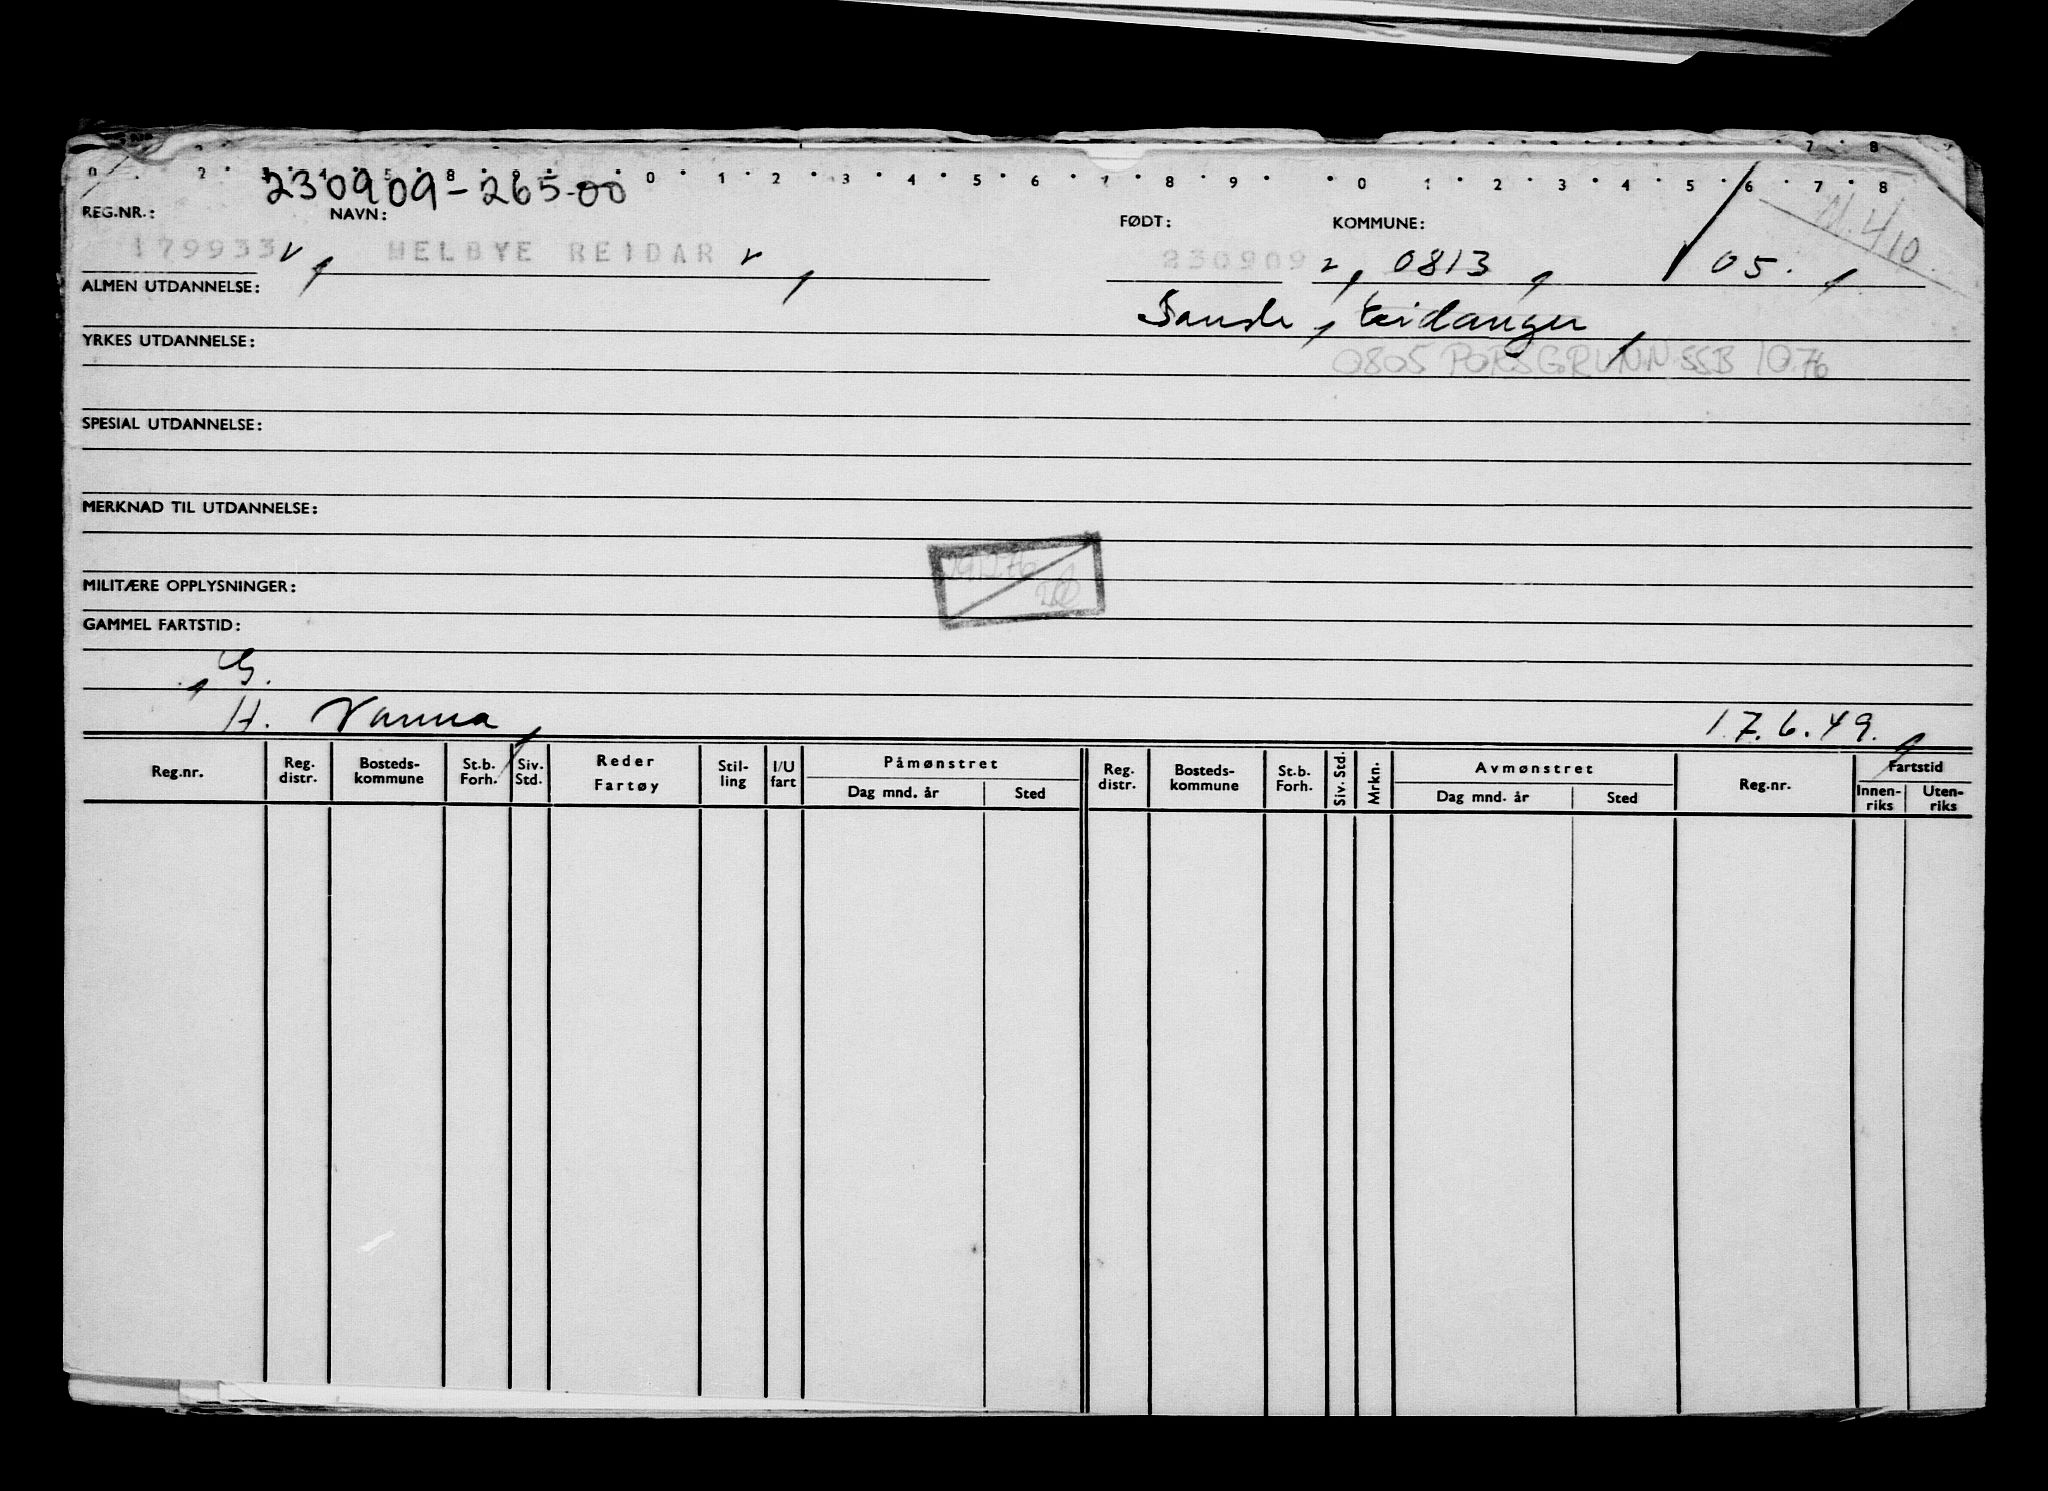 7 . 8
0 . 2 . 3 . 4 . 5 . 8 . 9 . . 0 . 1 . 2 . 3 . 4 . 5 . 6 . 7 . 8 . 9 . . 0 . 1 . 2 . 3 . 4 . 5 . 6 . 7 . 8
230909-265-00
REG.NR.: NAVN: FØDT: KOMMUNE:
179933 HELBYE REIDAR 230909 0813 05. 410
ALMEN UTDANNELSE: Sande, Eidanger
YRKES UTDANNELSE: 0805 PORSGRUNN SSB 10.76
SPESIAL UTDANNELSE:
MERKNAD TIL UTDANNELSE:
MILITÆRE OPPLYSNINGER:
GAMMEL FARTSTID:
G.
H. Vanna 17.6.49.
Reg.nr. Reg. distr. Bosteds-kommune St.b. Forh. Siv. Std. Reder Fartøy Stil-ling I/U fart Påmønstret Dag mnd. år Sted Reg. distr. Bosteds-kommune St.b. Forh. Siv. Std. Mrkn. Avmønstret Dag mnd. år Sted Reg.nr. Fartstid Innen-riks Uten-riks